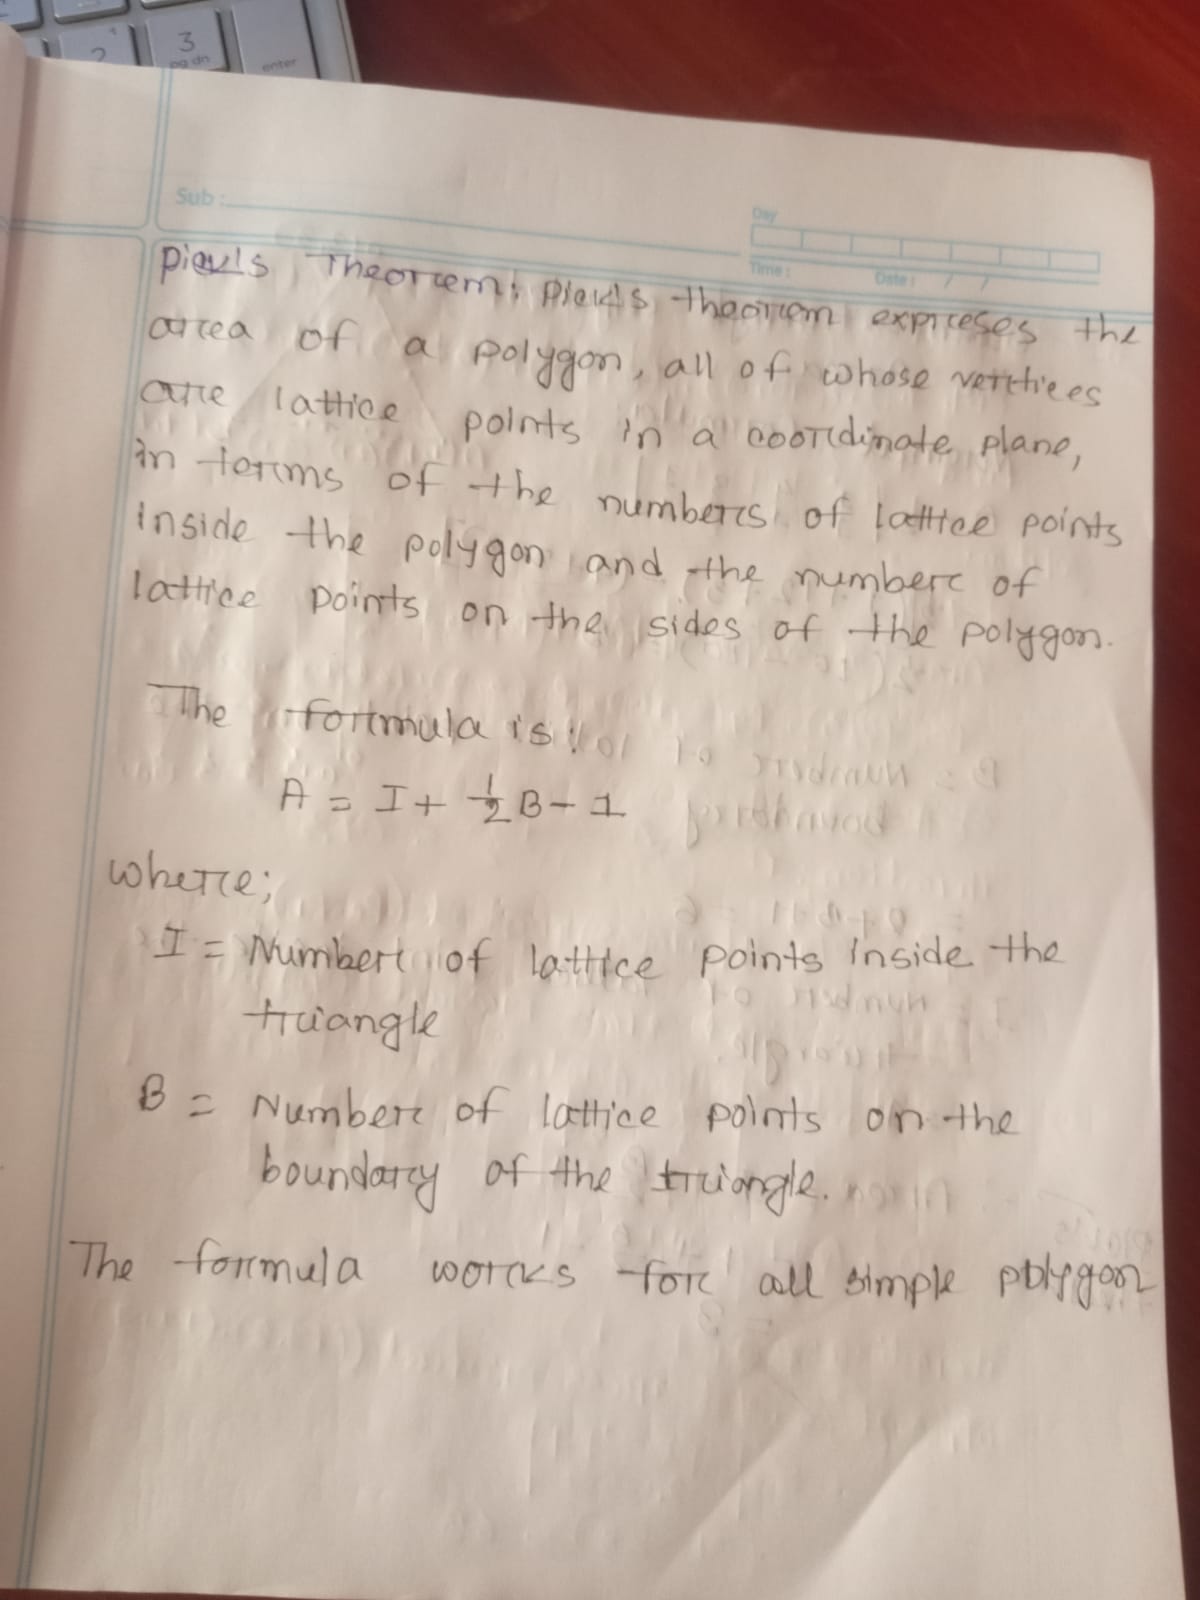 2
3
pg dn
enter
Sub :
Day
Time :
Date : / /
Pick's Theorem: Pick's theorem expreses the
area of a polygon, all of whose vertices
are lattice points in a coordinate plane,
in terms of the numbers of lattice points
inside the polygon and the number of
lattice points on the sides of the polygon.
The formula is:
A = I + 1/2 B - 1
where;
I = Number of lattice points inside the
triangle
B = Number of lattice points on the
boundary of the triangle.
The formula works for all simple polygon